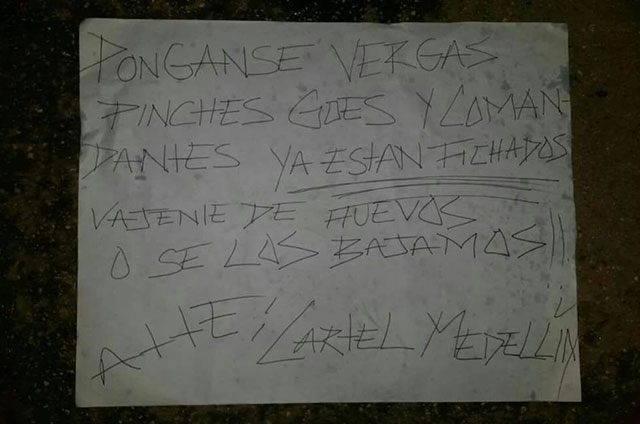 PONGANSE VERGAS
PINCHES GOES Y COMAN-
DANTES YA ESTAN FICHADOS
VAJENIE DE HUEVOS
O SE LOS BAJAMOS!!
ATTE: CARTEL MEDELLIN